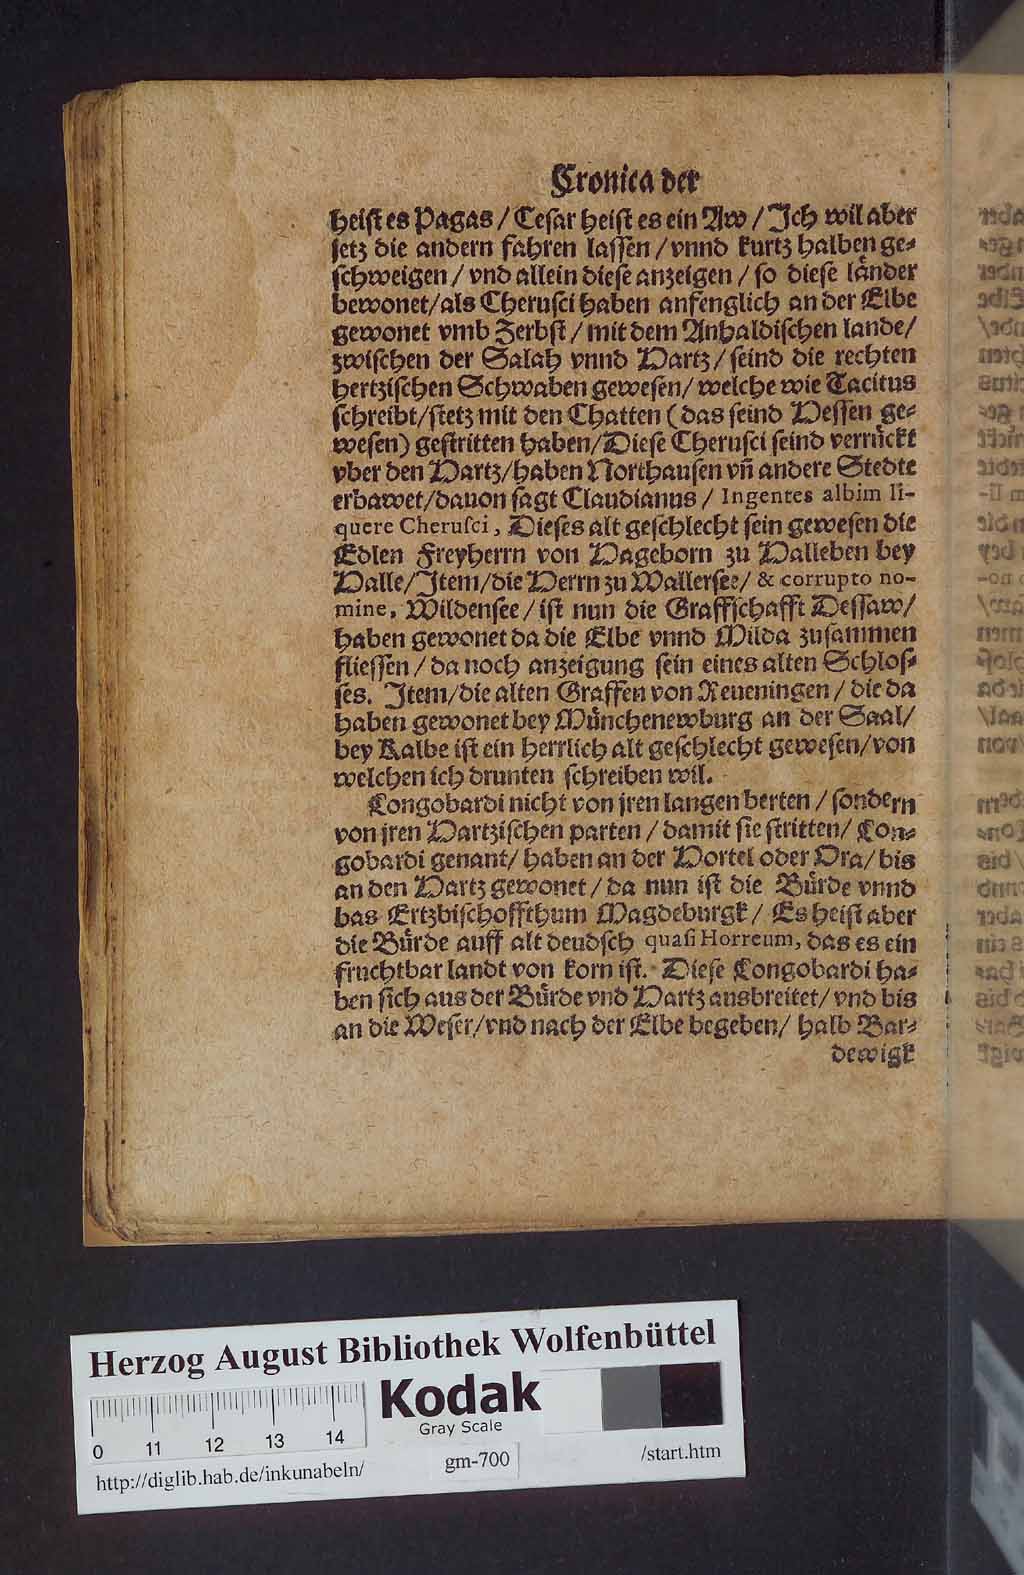 Cronica der
heist es Pagas / Cesar heist es ein Aw / Jch wil aber
jetz die andern fahren lassen / vnnd kurtz halben ge⸗
schweigen / vnd allein diese anzeigen / so diese länder
bewonet / als Cherusci haben anfenglich an der Elbe
gewonet vmb Zerbst / mit dem Anhaldischen lande /
zwischen der Salah vnnd Hartz / seind die rechten
hertzischen Schwaben gewesen / welche wie Tacitus
schreibt / stetz mit den Chatten (das seind Hessen ge⸗
wesen) gestritten haben / Diese Cherusci seind verrückt
vber den Hartz / haben Northausen vñ andere Stedte
erbawet / dauon sagt Claudianus / Ingentes albim li-
quere Cherusci, Dieses alt geschlecht sein gewesen die
Edlen Freyherrn von Hageborn zu Halleben bey
Halle / Jtem / die Herrn zu Wallersee / & corrupto no-
mine, Wildensee / ist nun die Graffschafft Dessaw /
haben gewonet da die Elbe vnnd Milda zusammen
fliessen / da noch anzeigung sein eines alten Schlos⸗
ses. Jtem / die alten Graffen von Reueningen / die da
haben gewonet bey Münchenewburg an der Saal /
bey Kalbe ist ein herrlich alt geschlecht gewesen / von
welchen ich drunten schreiben wil.
Longobardi nicht von jren langen berten / sondern
von jren Hartzischen parten / damit sie stritten / Lon⸗
gobardi genant / haben an der Hortel oder Ora / bis
an den Hartz gewonet / da nun ist die Bürde vnnd
bas Ertzbischoffthum Magdeburgk / Es heist aber
die Bürde auff alt deudsch quasi Horreum, das es ein
fruchtbar landt von korn ist. Diese Longobardi ha⸗
ben sich aus der Bürde vnd Hartz ausbreitet / vnd bis
an die Weser / vnd nach der Elbe begeben / halb Bar⸗
dewigk
Herzog August Bibliothek Wolfenbüttel
Kodak
Gray Scale
0 11 12 13 14
http://diglib.hab.de/inkunabeln/
gm-700
/start.htm